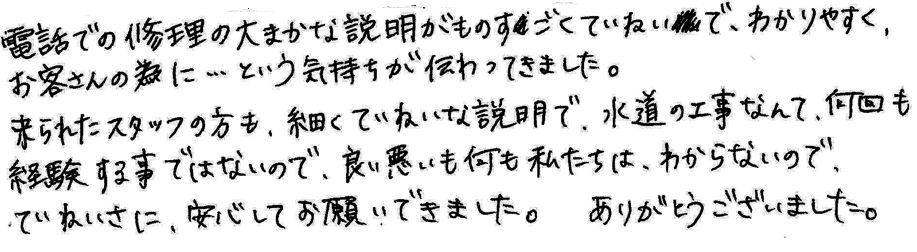 電話での修理の大まかな説明がものすごくていねいで、わかりやすく、
お客さんの為に…という気持ちが伝わってきました。
来られたスタッフの方も、細くていねいな説明で、水道の工事なんて、何回も
経験する事ではないので、良い悪いも何も私たちは、わからないので、
ていねいさに、安心してお願いできました。 ありがとうございました。